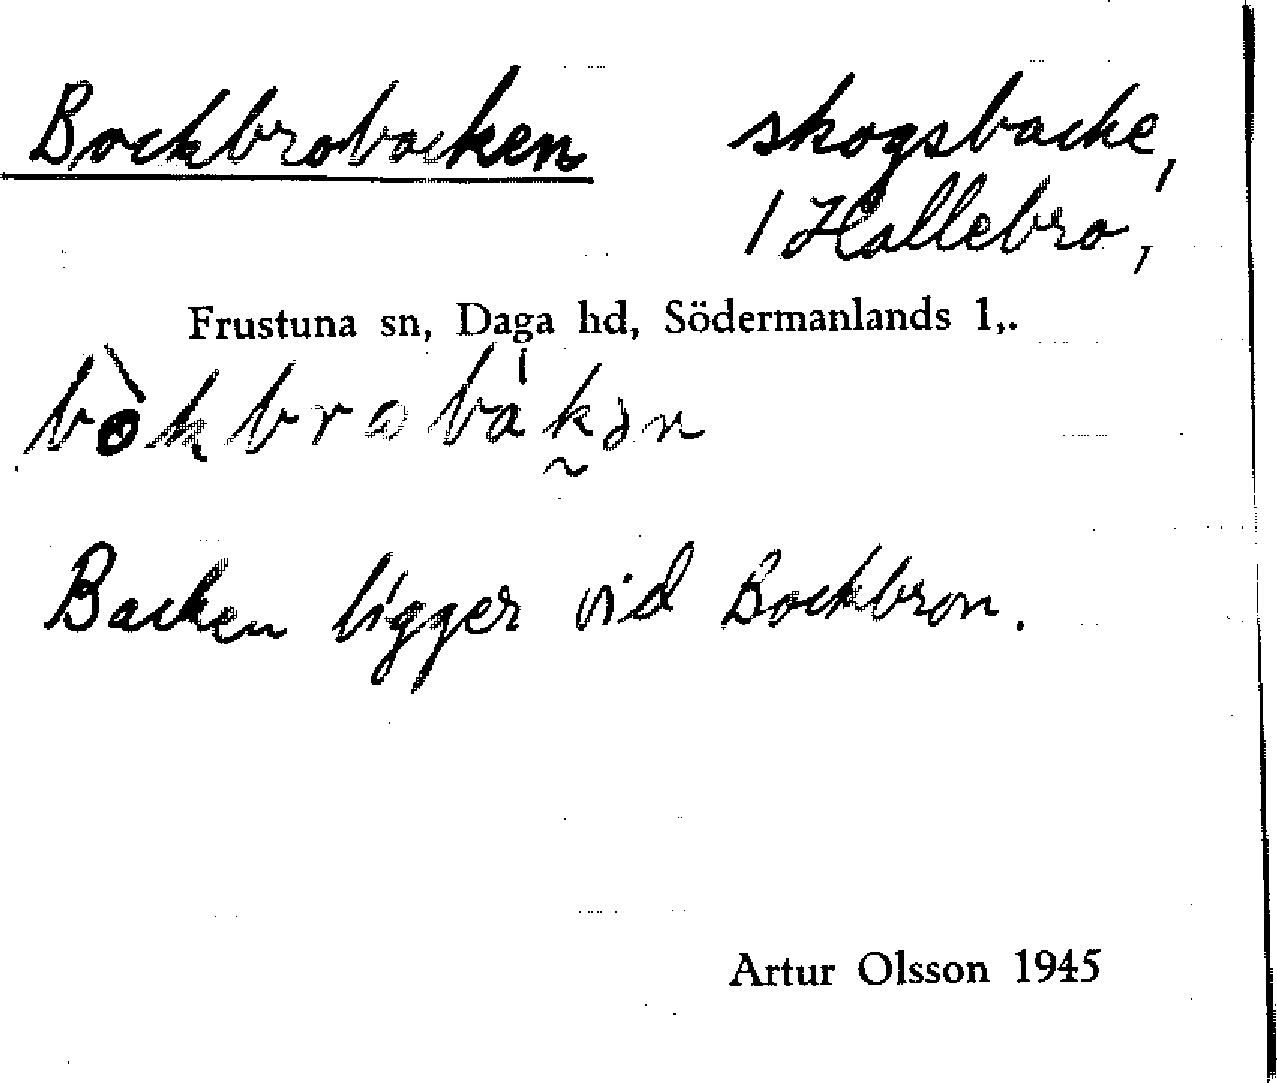 Bockbrobacken skogsbacke,
/ Hallebro,
Frustuna sn, Daga hd, Södermanlands l,.
bòkbrabákən
Backen ligger vid Bockbron.
Artur Olsson 1945